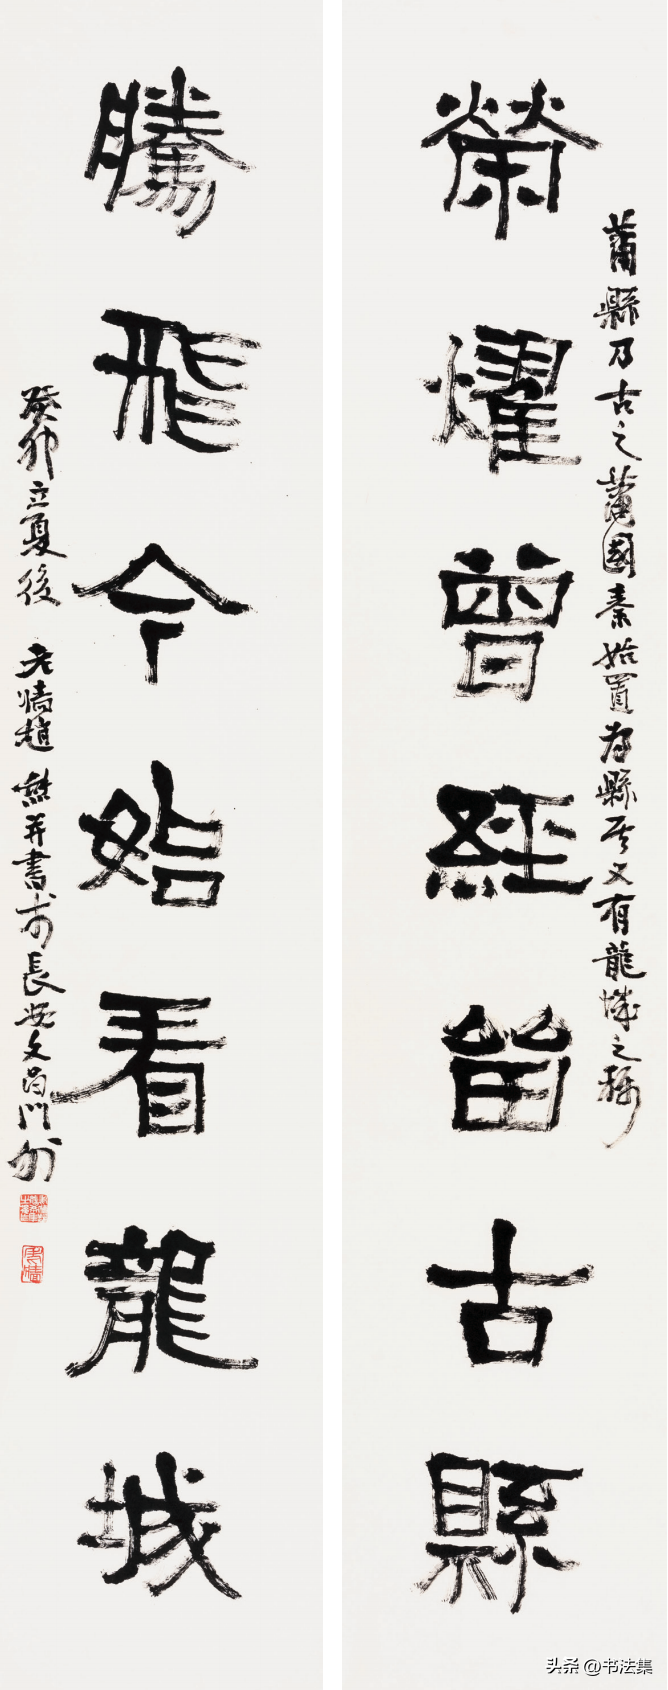 蒲縣乃古之蒲國秦始置為縣其又有龍城之稱
榮燿曾經留古縣
騰飛今始看龍城
癸卯立夏後 老墻趙熊并書於長安文昌門外
头条 @书法集